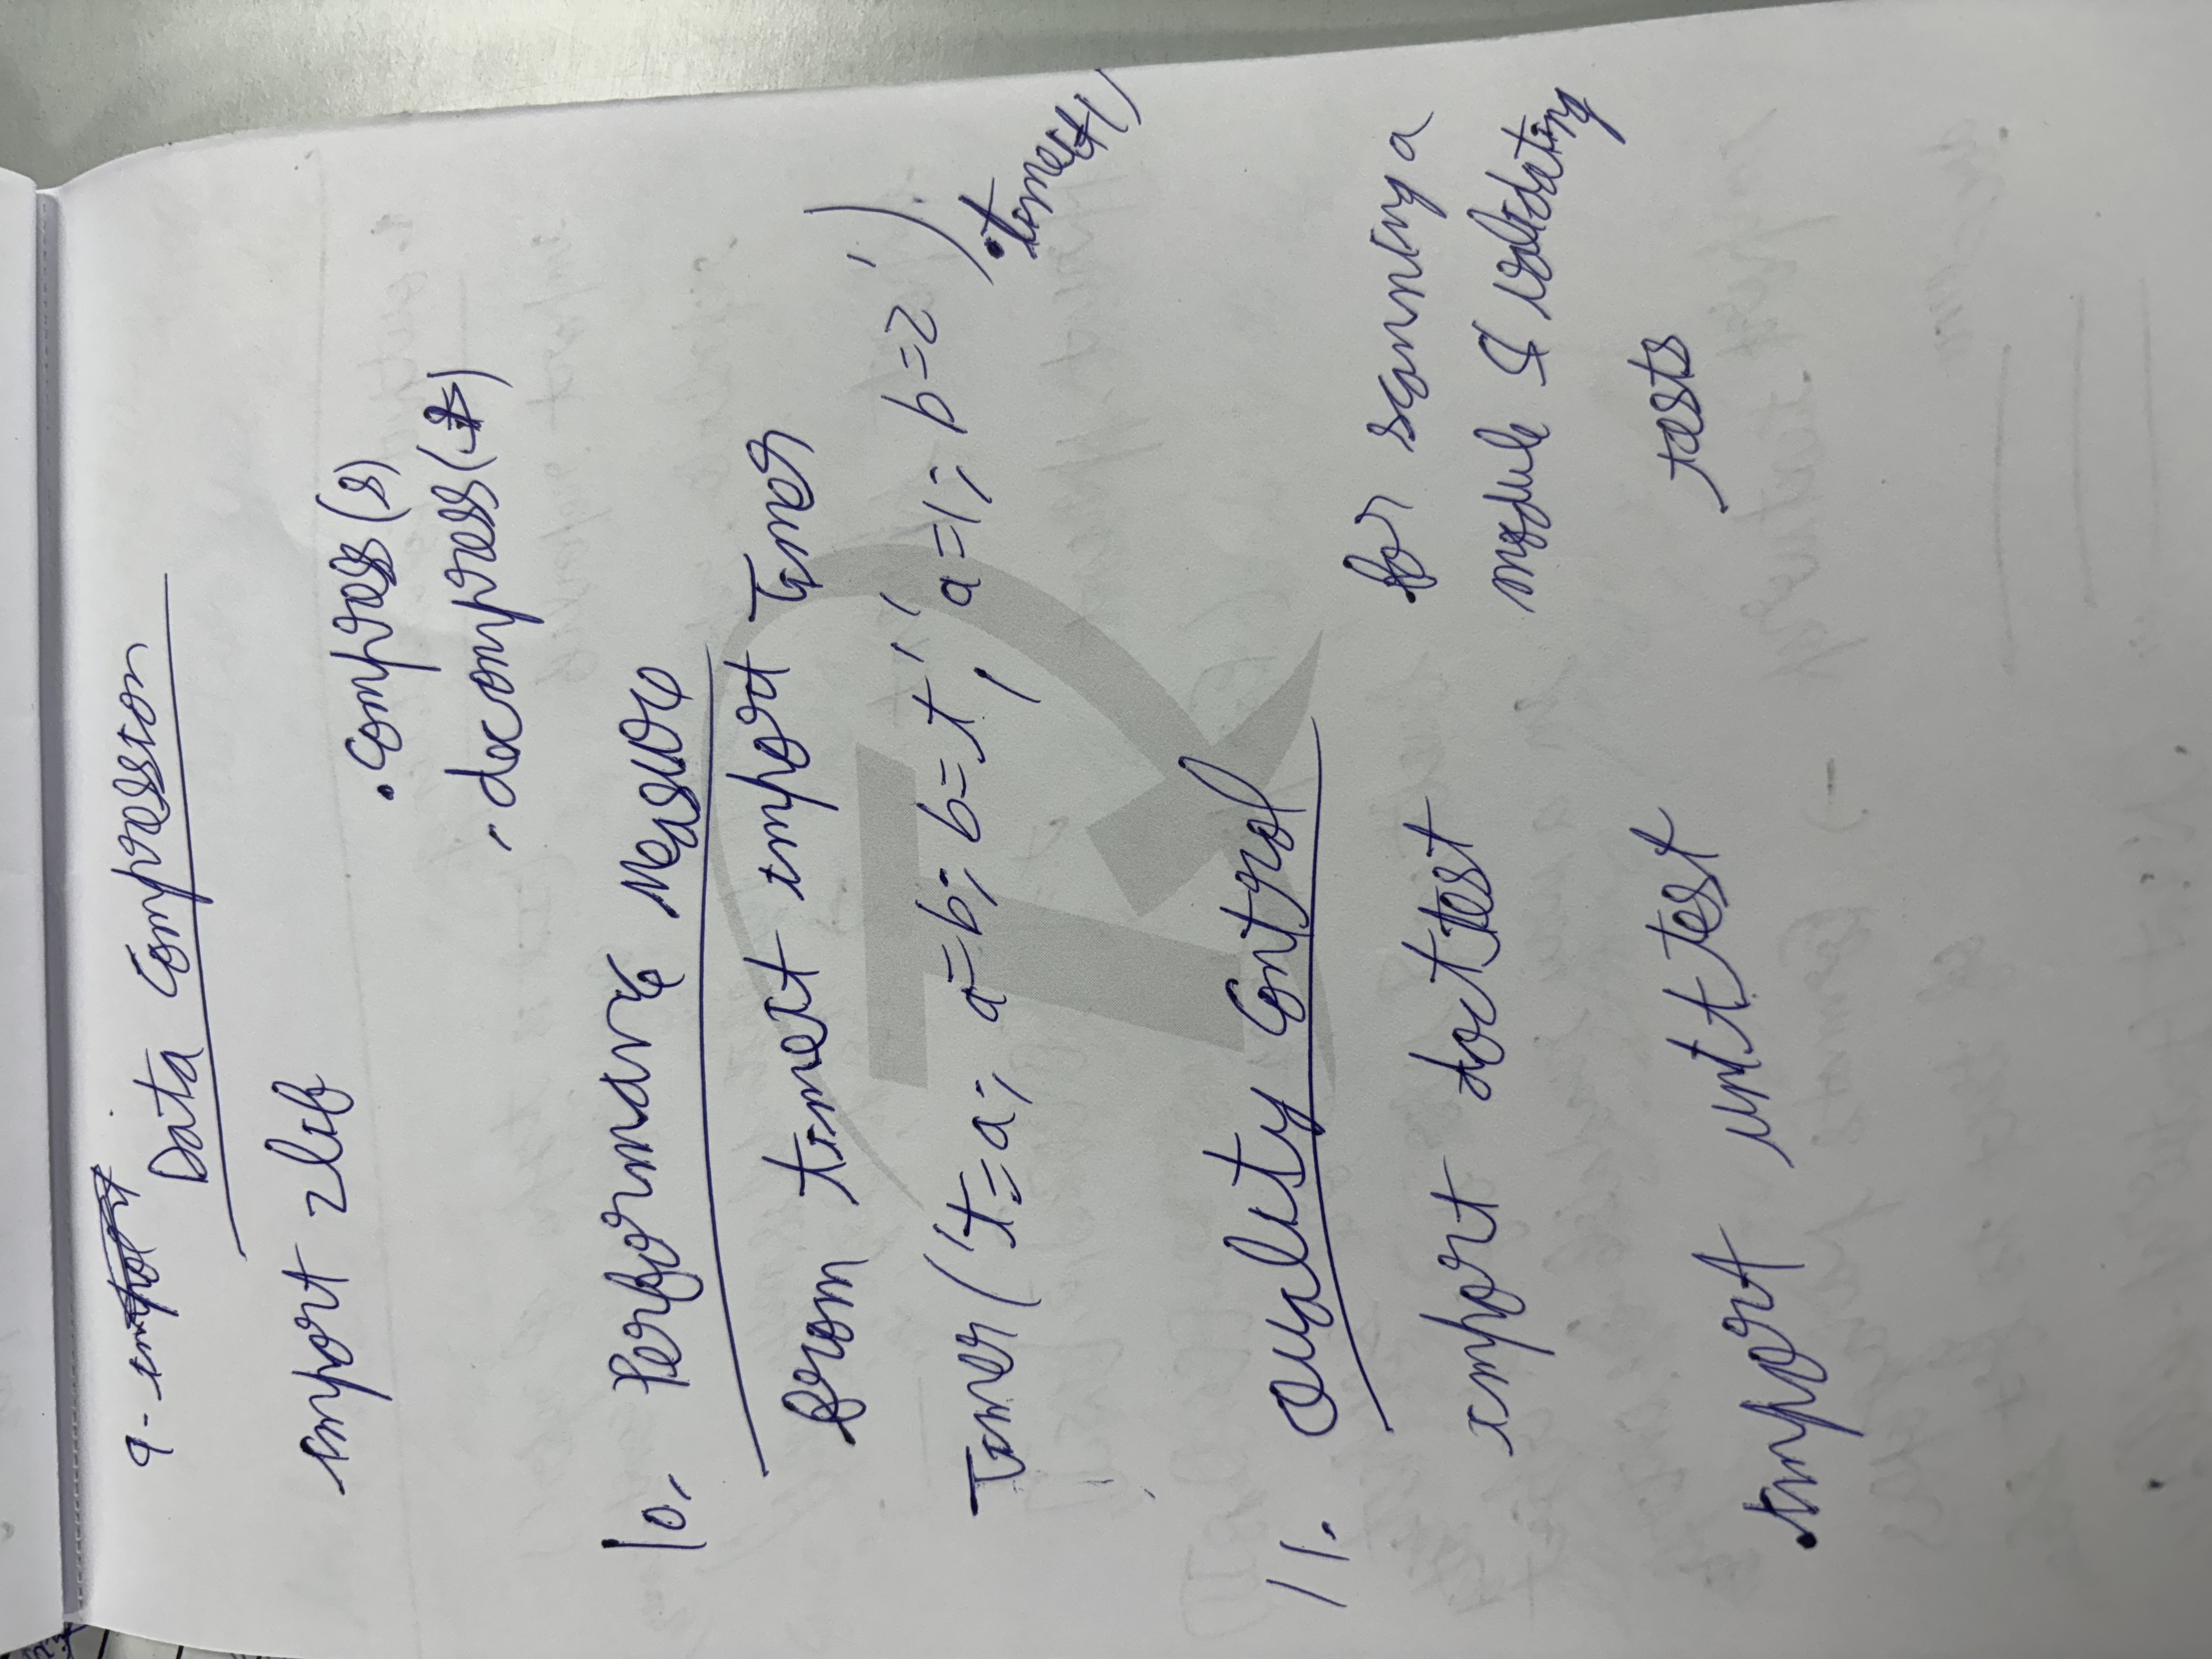 9- import
Data Compression
import zlib
.compress(s)
.decompress(t)
10. Performance Measure
from timeit import Timer
Timer('t=a; a=b; b=t', 'a=1; b=2').timeit()
11. Quality Control
import docttest
for scanning a
module & validating
tests
import unittest